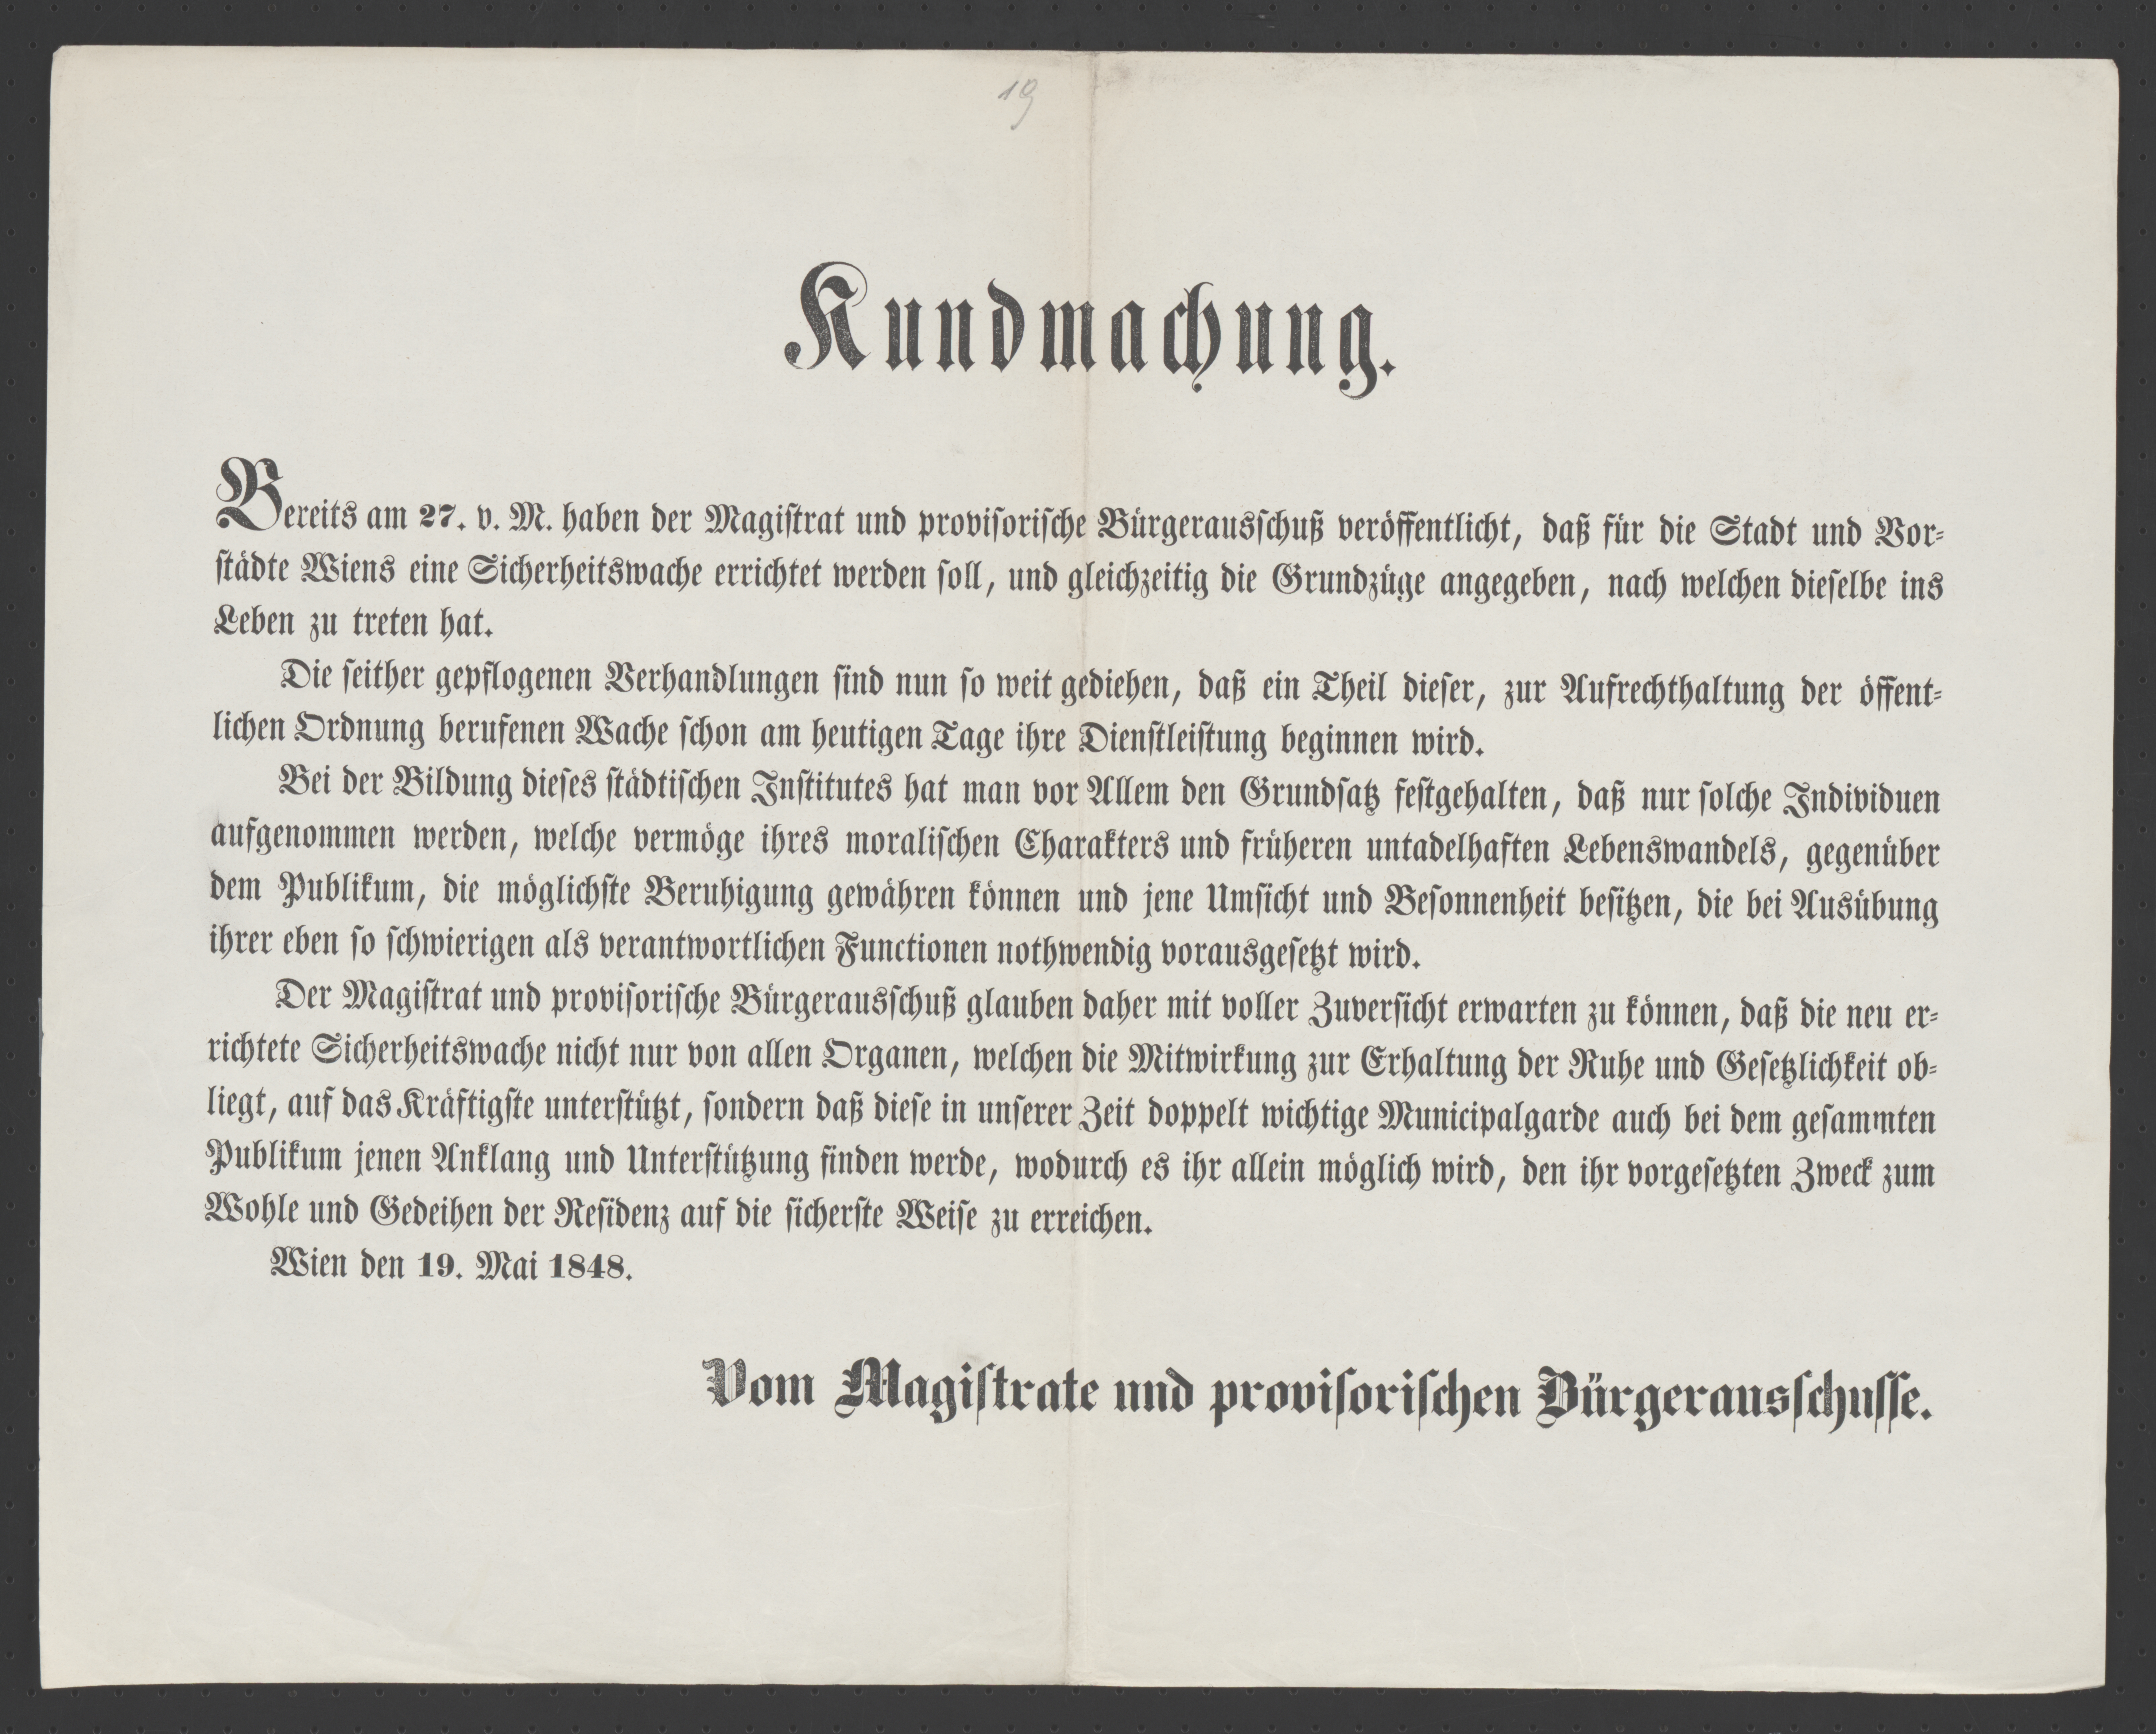 19
Kundmachung.
Bereits am 27. v. M. haben der Magiſtrat und proviſoriſche Bürgerausſchuß veröffentlicht, daß für die Stadt und Vor-
ſtädte Wiens eine Sicherheitswache errichtet werden ſoll, und gleichzeitig die Grundzüge angegeben, nach welchen dieſelbe ins
Leben zu treten hat.
Die ſeither gepflogenen Verhandlungen ſind nun ſo weit gediehen, daß ein Theil dieſer, zur Aufrechthaltung der öffent-
lichen Ordnung berufenen Wache ſchon am heutigen Tage ihre Dienſtleiſtung beginnen wird.
Bei der Bildung dieſes ſtädtiſchen Inſtitutes hat man vor Allem den Grundſatz feſtgehalten, daß nur ſolche Individuen
aufgenommen werden, welche vermöge ihres moraliſchen Charakters und früheren untadelhaften Lebenswandels, gegenüber
dem Publikum, die möglichſte Beruhigung gewähren können und jene Umſicht und Beſonnenheit beſitzen, die bei Ausübung
ihrer eben ſo ſchwierigen als verantwortlichen Functionen nothwendig vorausgeſetzt wird.
Der Magiſtrat und proviſoriſche Bürgerausſchuß glauben daher mit voller Zuverſicht erwarten zu können, daß die neu er-
richtete Sicherheitswache nicht nur von allen Organen, welchen die Mitwirkung zur Erhaltung der Ruhe und Geſetzlichkeit ob-
liegt, auf das Kräftigſte unterſtützt, ſondern daß dieſe in unſerer Zeit doppelt wichtige Municipalgarde auch bei dem geſammten
Publikum jenen Anklang und Unterſtützung finden werde, wodurch es ihr allein möglich wird, den ihr vorgeſetzten Zweck zum
Wohle und Gedeihen der Reſidenz auf die ſicherſte Weiſe zu erreichen.
Wien den 19. Mai 1848.
Vom Magiſtrate und proviſoriſchen Bürgerausſchuſſe.